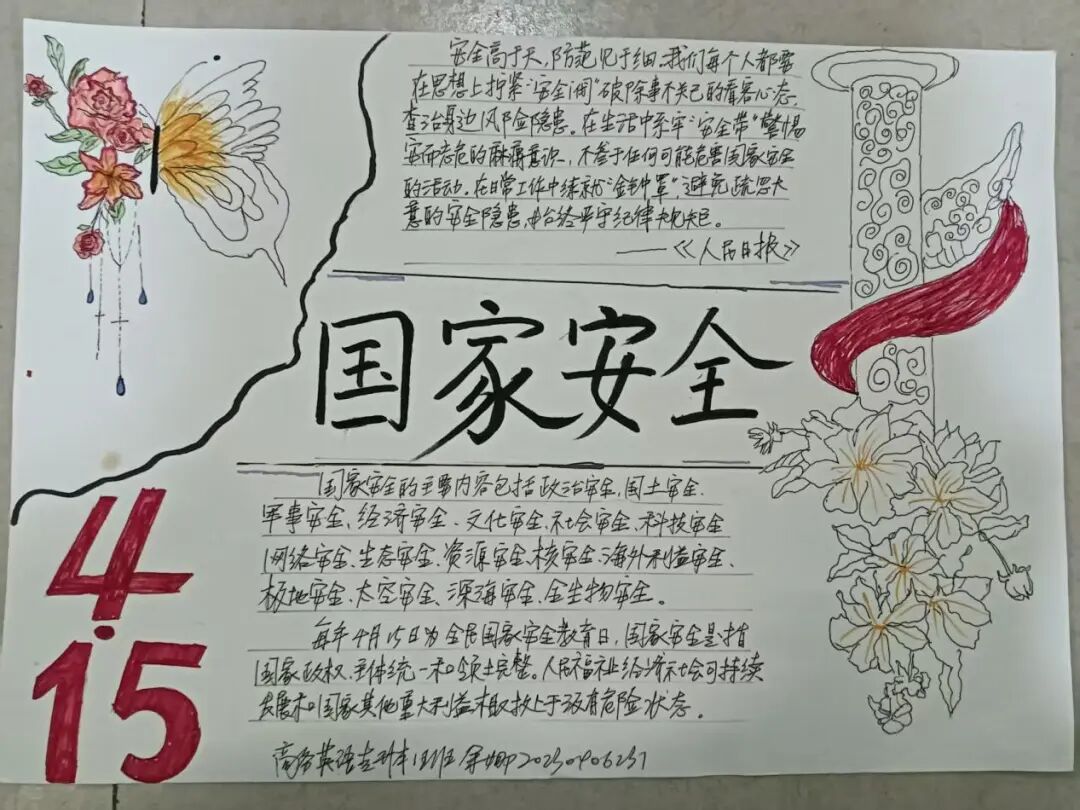 安全高于天,防范见于细,我们每个人都要
在思想上拧紧“安全阀”破除事不关己的看客心态,
查治身边风险隐患。在生活中系牢“安全带”警惕
安而忘危的麻痹意识,不参于任何可能危害国家安全
的活动。在日常工作中练就“金钟罩”,避免疏忽大
意的安全隐患,始终严守纪律规矩。
——《人民日报》
国家安全
国家安全的主要内容包括政治安全、国土安全、
军事安全、经济安全、文化安全、社会安全、科技安全
网络安全、生态安全、资源安全、核安全、海外利益安全、
极地安全、太空安全、深海安全、生物安全。
4.15
每年4月15日为全民国家安全教育日,国家安全是指
国家政权、主体统一和领土完整。人民福祉经济社会可持续
发展和国家其他重大利益相对处于没有危险状态。
英语 班 2023